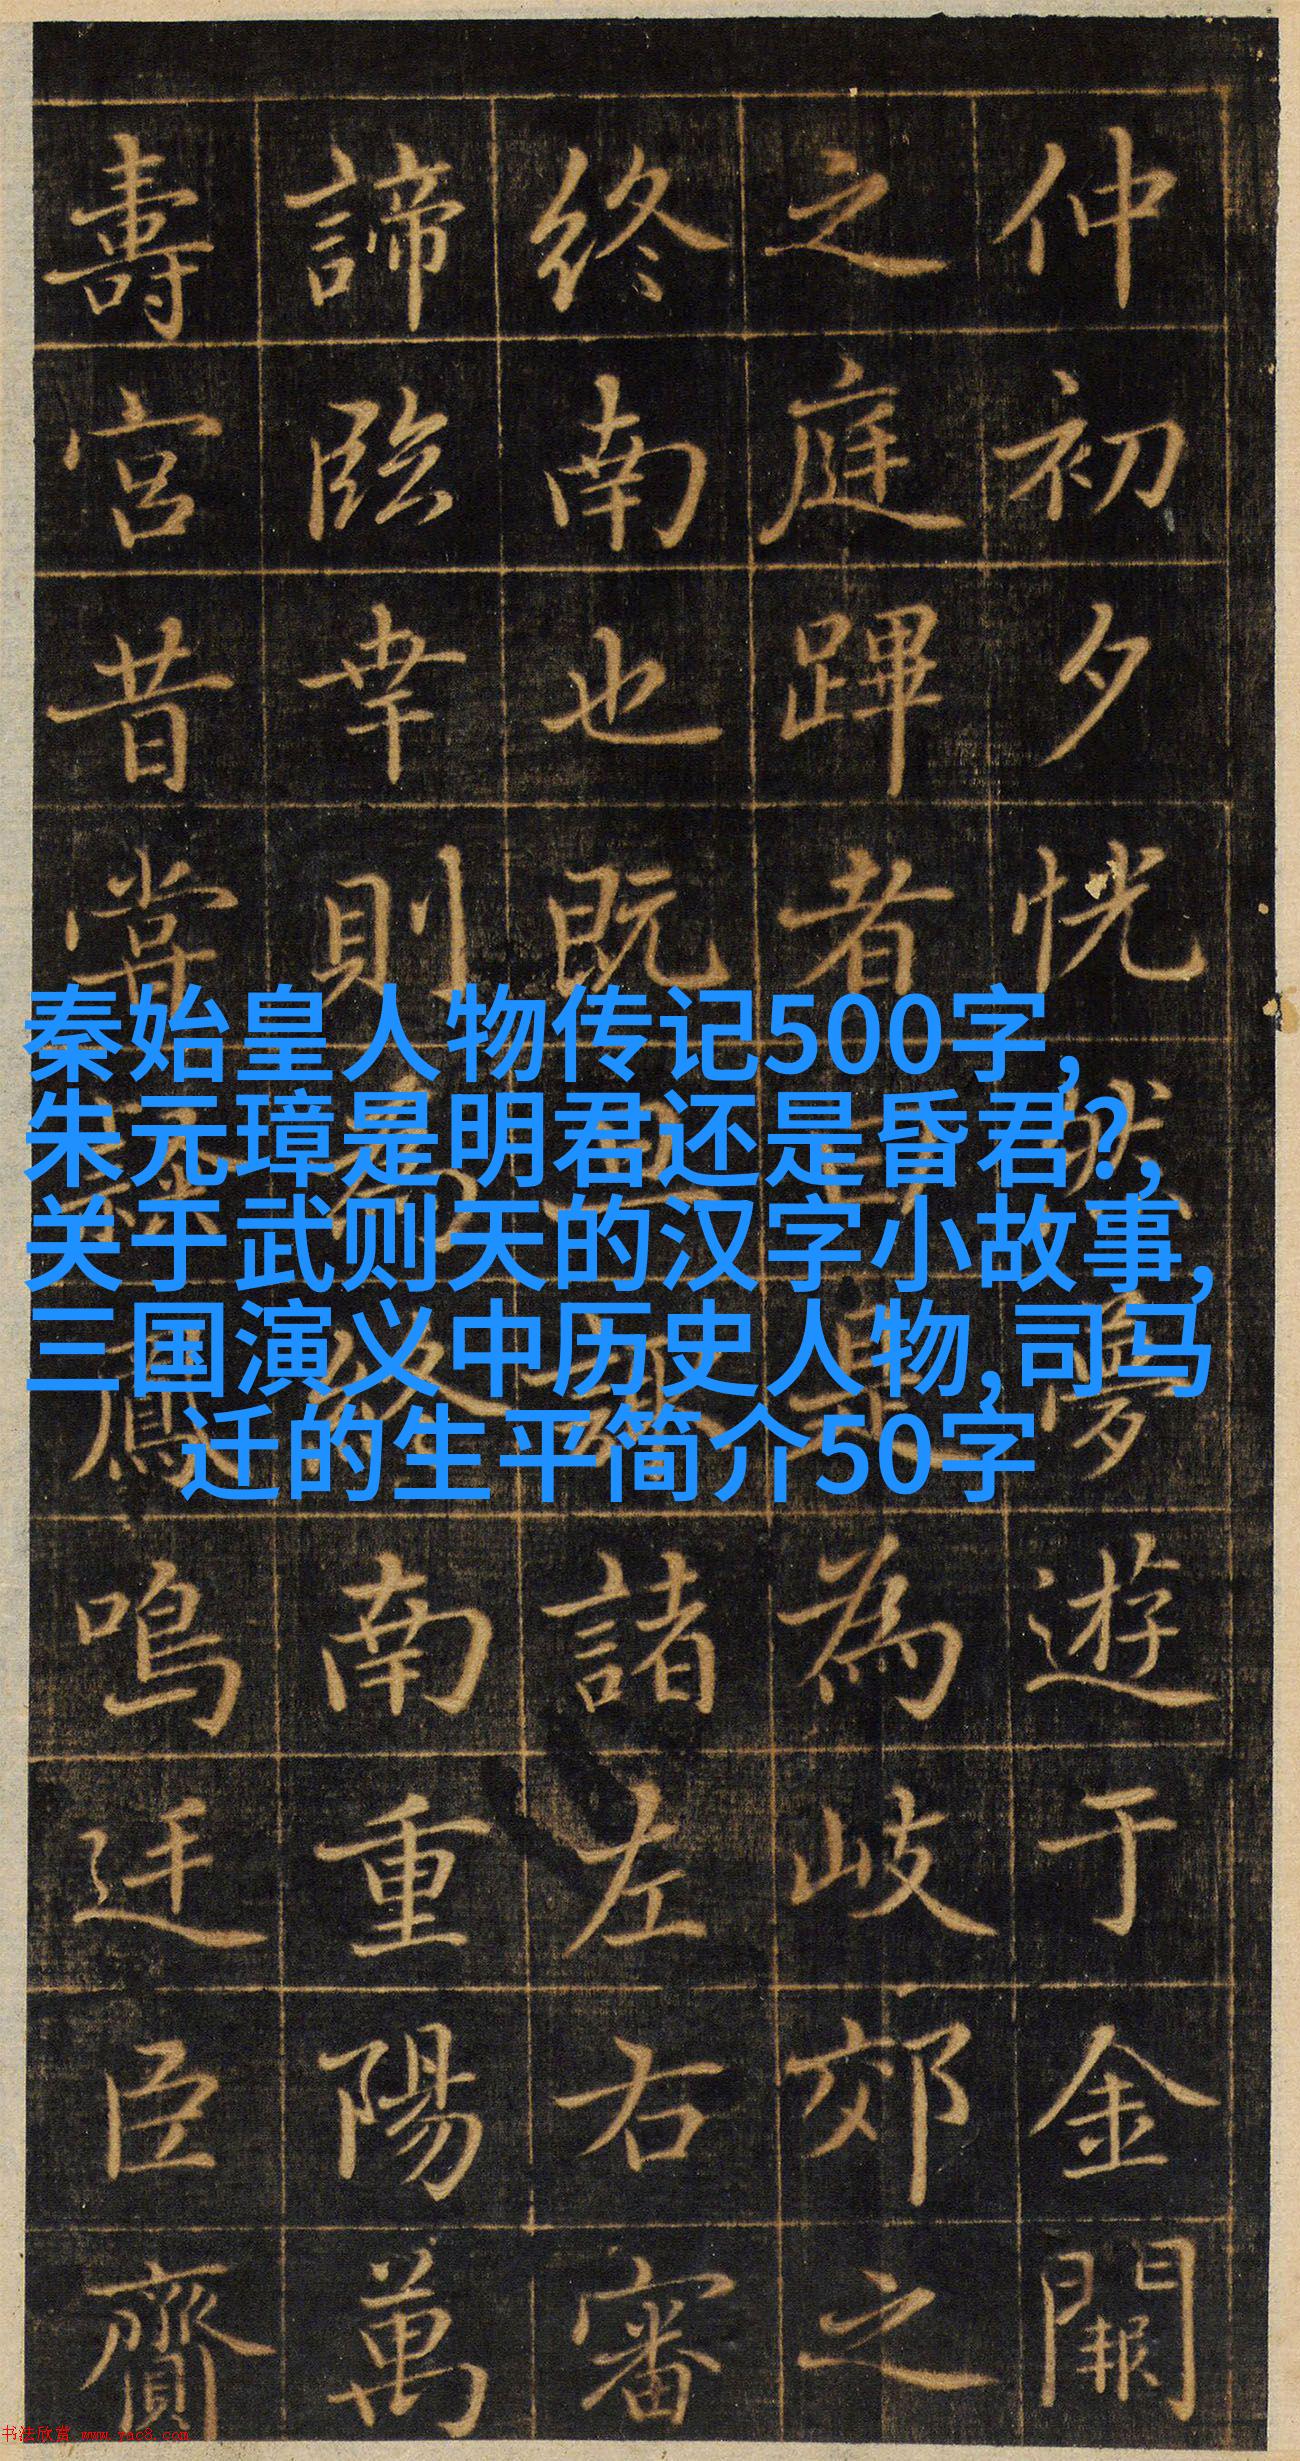 秦始皇人物传记500字,
朱元璋是明君还是昏君?,
关于武则天的汉字小故事,
三国演义中历史人物,司马
迁的生平简介50字
仲初夕恍然夢遊于金闕
之庭蹕者是為岐郊之
終南也既諸左右審
諦臨幸則為終南重陽萬
壽宮昔嘗鳳鳴廷臣齎
书法欣赏 www.yac8.com